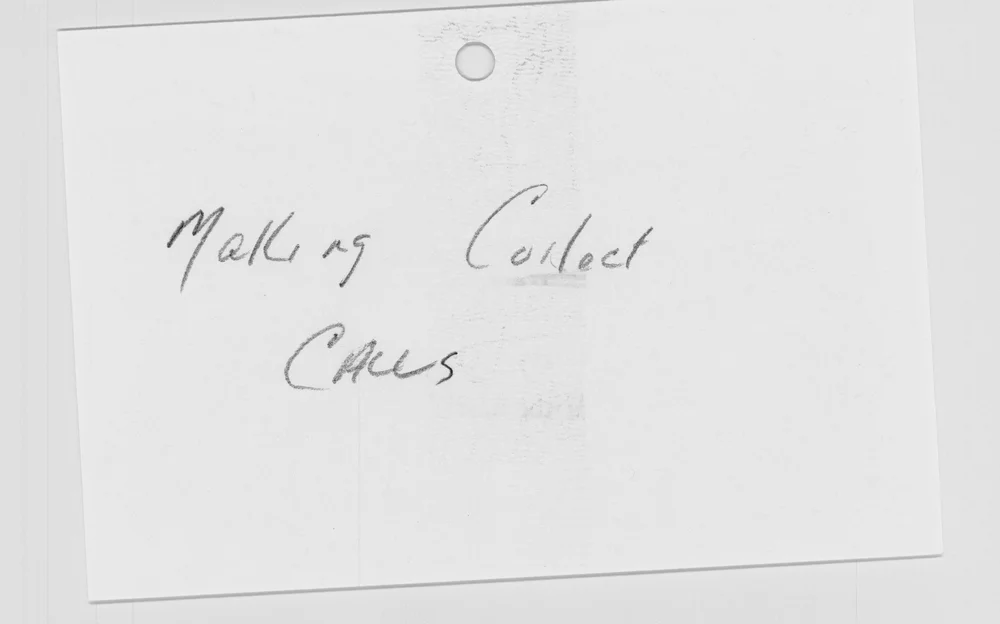 Making Collect
Calls